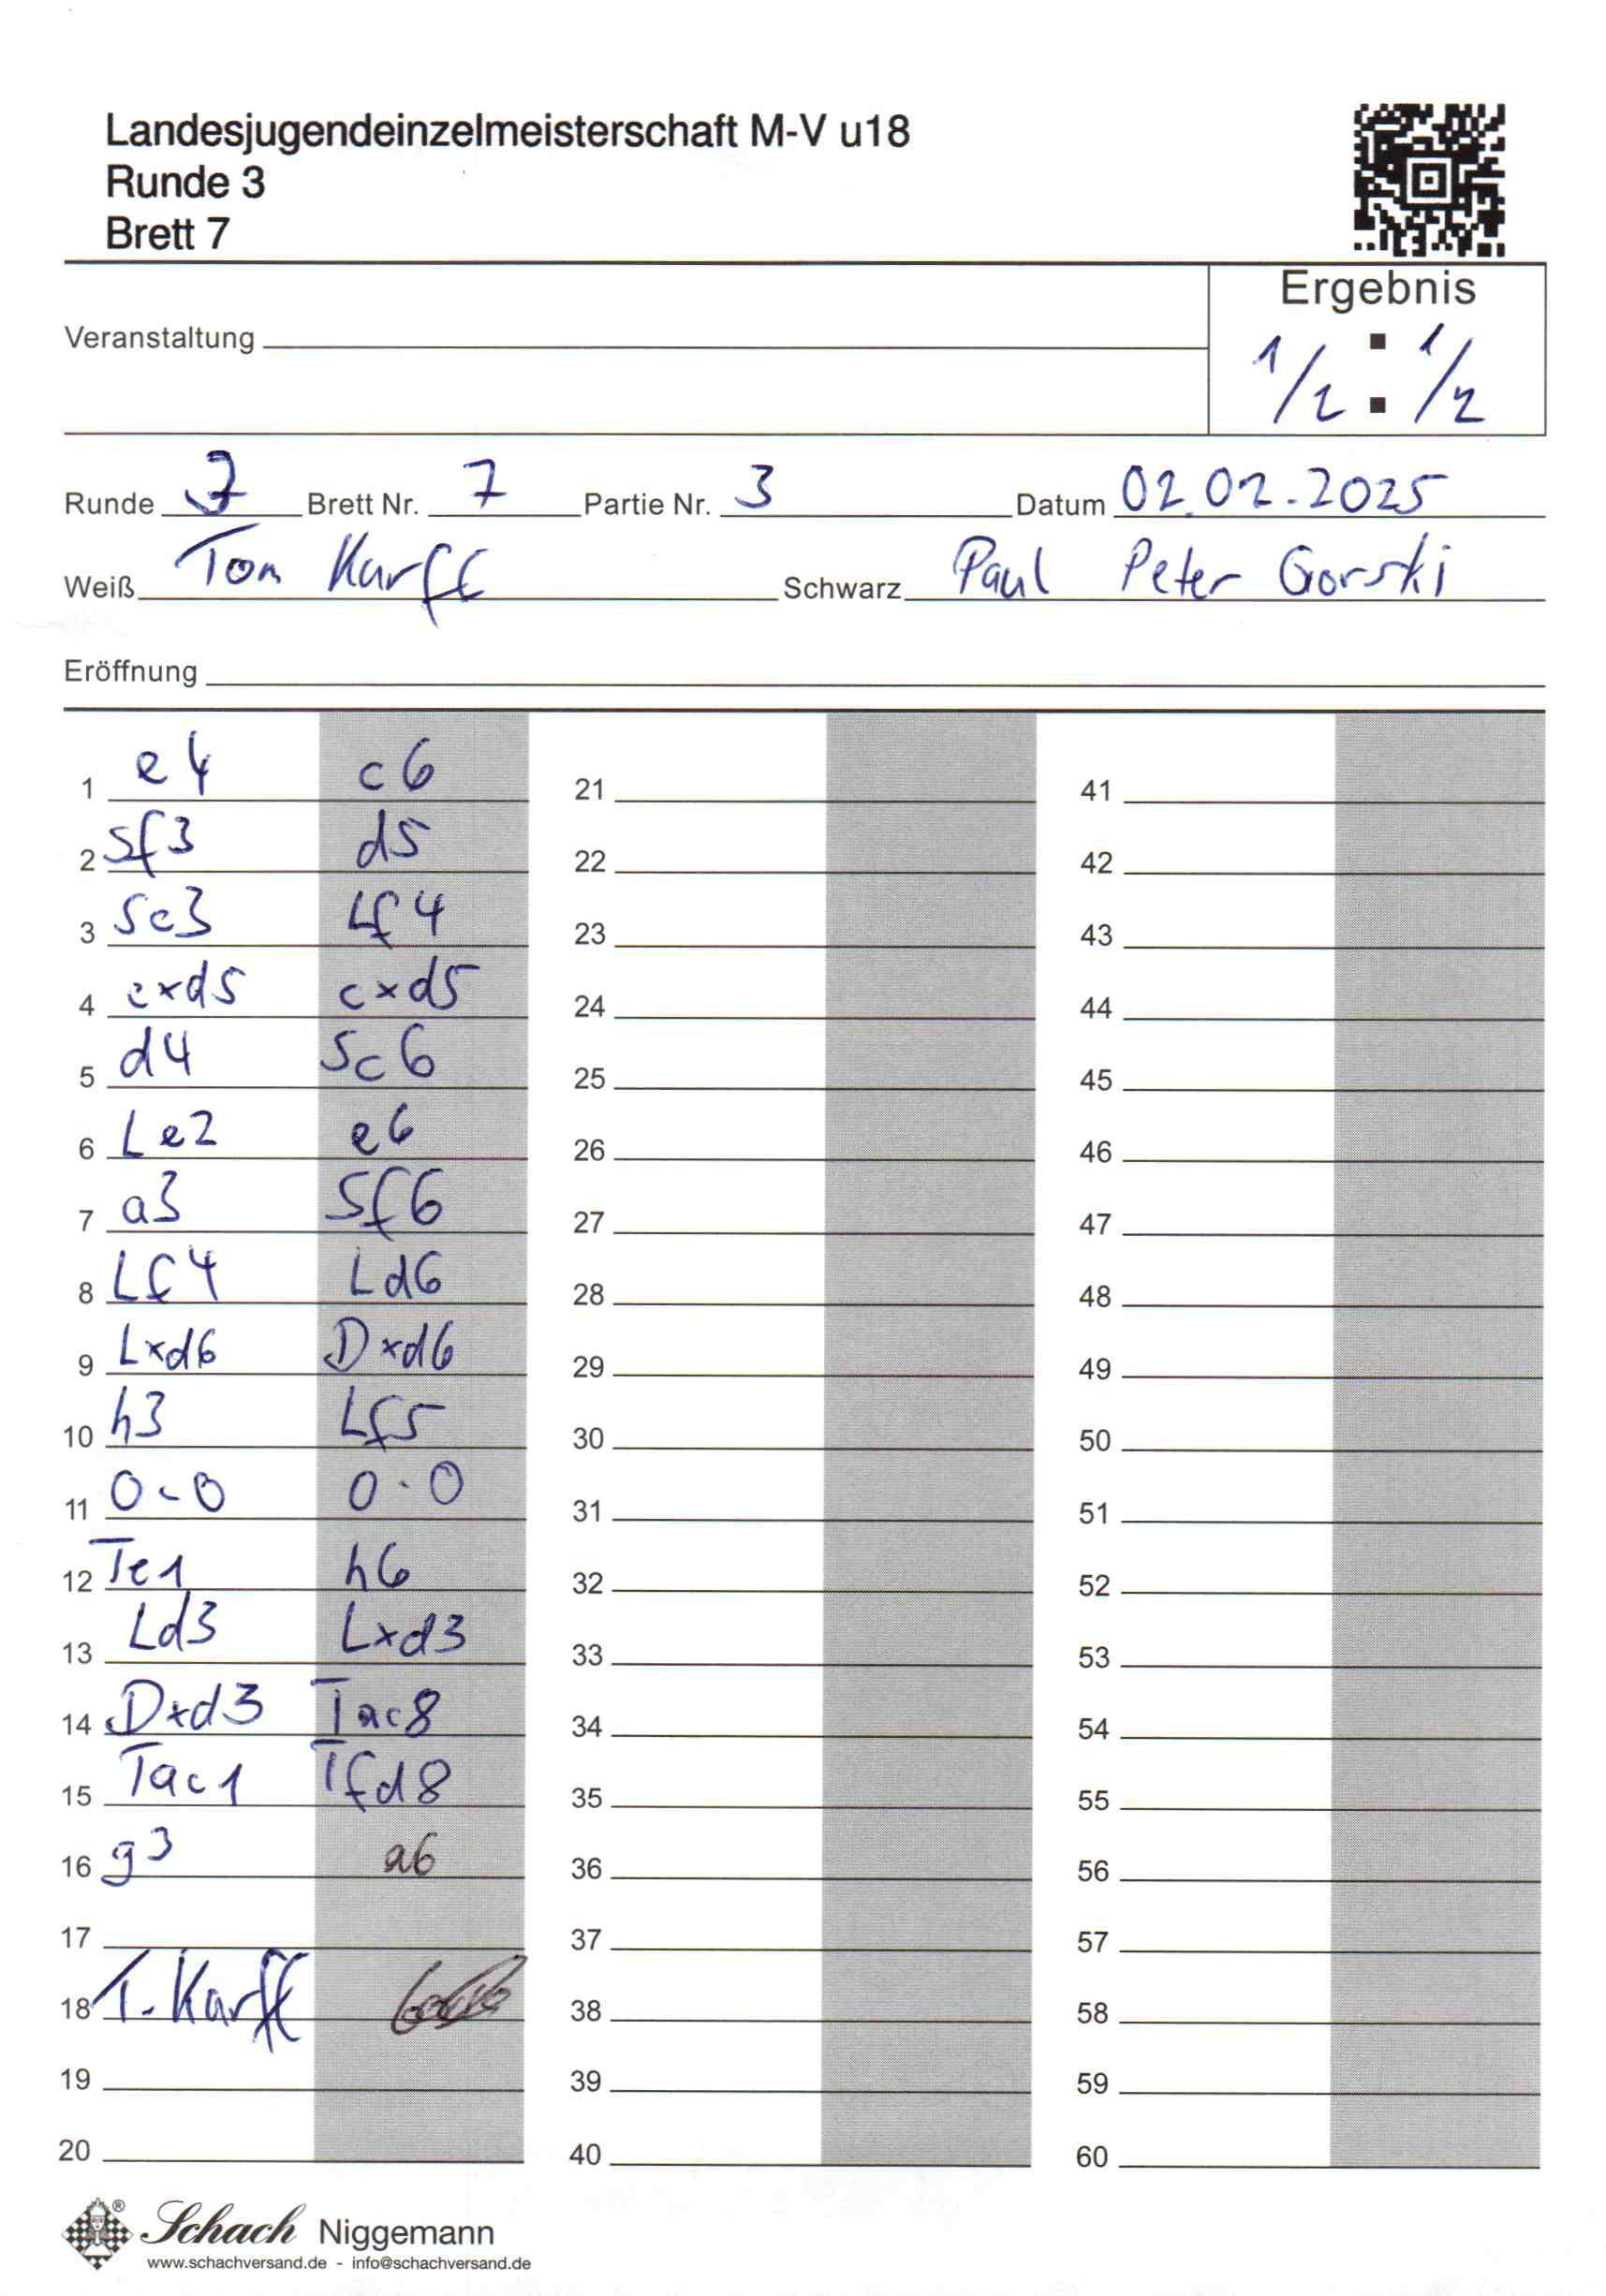 Landesjugendeinzelmeisterschaft M-V u18
Runde 3
Brett 7
Ergebnis
Veranstaltung
1/2 : 1/2
Runde 7 Brett Nr. 7 Partie Nr. 3 Datum 02.02.2025
Weiß Tom Karff Schwarz Paul Peter Gorski
Eröffnung
1 e4 c6 21 41
2 Sf3 d5 22 42
3 Sc3 Lf4 23 43
4 exd5 cxd5 24 44
5 d4 Sc6 25 45
6 Le2 e6 26 46
7 a3 Sf6 27 47
8 Lf4 Ld6 28 48
9 Lxd6 Dxd6 29 49
10 h3 Lf5 30 50
11 0-0 0-0 31 51
12 Te1 h6 32 52
13 Ld3 Lxd3 33 53
14 Dxd3 Tac8 34 54
15 Tac1 Tfd8 35 55
16 g3 a6 36 56
17 37 57
18 T. Karff 38 58
19 39 59
20 40 60
® Schach Niggemann
www.schachversand.de - info@schachversand.de